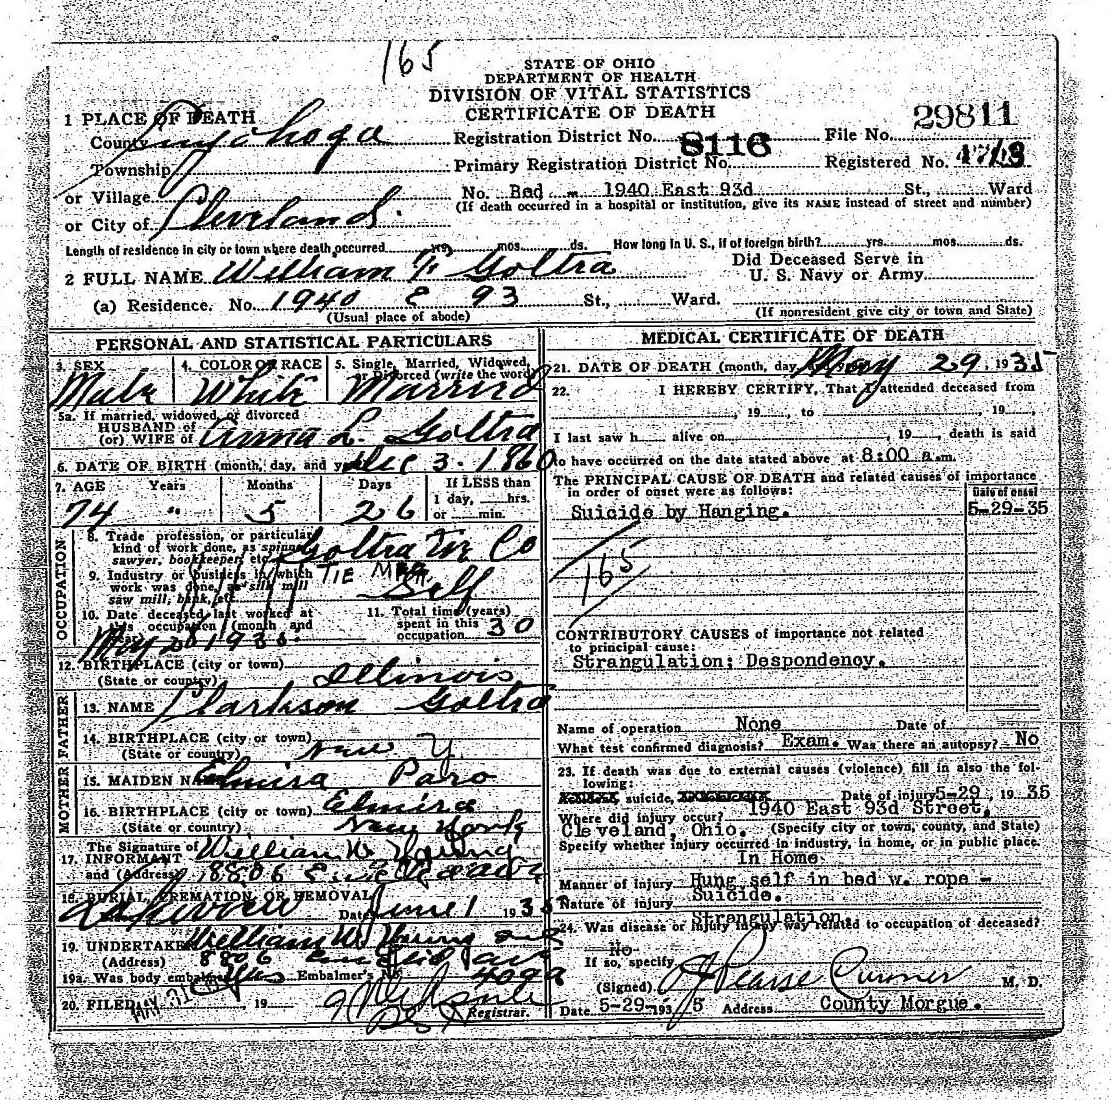 165
STATE OF OHIO
DEPARTMENT OF HEALTH
DIVISION OF VITAL STATISTICS
CERTIFICATE OF DEATH
1 PLACE OF DEATH
County Cuyahoga
Registration District No. 8116
File No. 29811
Township
Primary Registration District No.
Registered No.
or Village
No. Bed - 1940 East 93d St., Ward
or City of Cleveland.
(If death occurred in a hospital or institution, give its NAME instead of street and number)
Length of residence in city or town where death occurred yrs. mos. ds. How long in U. S., if of foreign birth? yrs. mos. ds.
2 FULL NAME William F. Goltra
Did Deceased Serve in
U. S. Navy or Army
(a) Residence. No. 1940 E 93 St., Ward.
(Usual place of abode)
(If nonresident give city or town and State)
PERSONAL AND STATISTICAL PARTICULARS
3. SEX
Male
4. COLOR OR RACE
White
5. Single, Married, Widowed,
or Divorced (write the word)
Married
5a. If married, widowed, or divorced
HUSBAND of
(or) WIFE of Anna L. Goltra
6. DATE OF BIRTH (month, day, and year) Dec 3. 1860
7. AGE Years Months Days
If LESS than
1 day, hrs.
or min.
74 " 5 26
OCCUPATION
8. Trade profession, or particular
kind of work done, as spinner,
sawyer, bookkeeper, etc. Goltra Tie Co
9. Industry or business in which
work was done, as silk mill
saw mill, bank, etc. TIE MFR. Self
10. Date deceased last worked at
this occupation (month and
May 20 1935.
11. Total time (years)
spent in this
occupation 30
12. BIRTHPLACE (city or town)
(State or country) Illinois
FATHER
13. NAME Clarkson Goltra
14. BIRTHPLACE (city or town)
(State or country) New Y
MOTHER
15. MAIDEN NAME Elmira Paro
16. BIRTHPLACE (city or town) Elmira
(State or country) New York
The Signature of
17. INFORMANT William W. Young
and (Address) 8806 Euclid ave
18. BURIAL, CREMATION, OR REMOVAL
Lakeview Date June 1 1935
19. UNDERTAKER William W. Young
(Address) 8806 Euclid ave
19a. Was body embalmed yes Embalmer's No.
20. FILED MAY 31 19
Registrar.
MEDICAL CERTIFICATE OF DEATH
21. DATE OF DEATH (month, day, May 29, 1935
22. I HEREBY CERTIFY, That I attended deceased from
, 19 , to , 19 ,
I last saw h alive on , 19 , death is said
to have occurred on the date stated above at 8:00 a.m.
The PRINCIPAL CAUSE OF DEATH and related causes of importance
in order of onset were as follows:
Date of onset
Suicide by Hanging. 5-29-35
165
CONTRIBUTORY CAUSES of importance not related
to principal cause:
Strangulation; Despondency.
Name of operation None Date of
What test confirmed diagnosis? Exam. Was there an autopsy? No
23. If death was due to external causes (violence) fill in also the fol-
lowing:
suicide, Date of injury 5-29, 1935
Where did injury occur? 1940 East 93d Street,
Cleveland, Ohio. (Specify city or town, county, and State)
Specify whether injury occurred in industry, in home, or in public place.
In Home.
Manner of injury Hung self in bed w. rope -
Suicide.
Nature of injury Strangulation.
24. Was disease or injury in any way related to occupation of deceased?
No
If so, specify
(Signed) A J Pearse Coroner M. D.
Date 5-29-1935 Address County Morgue.